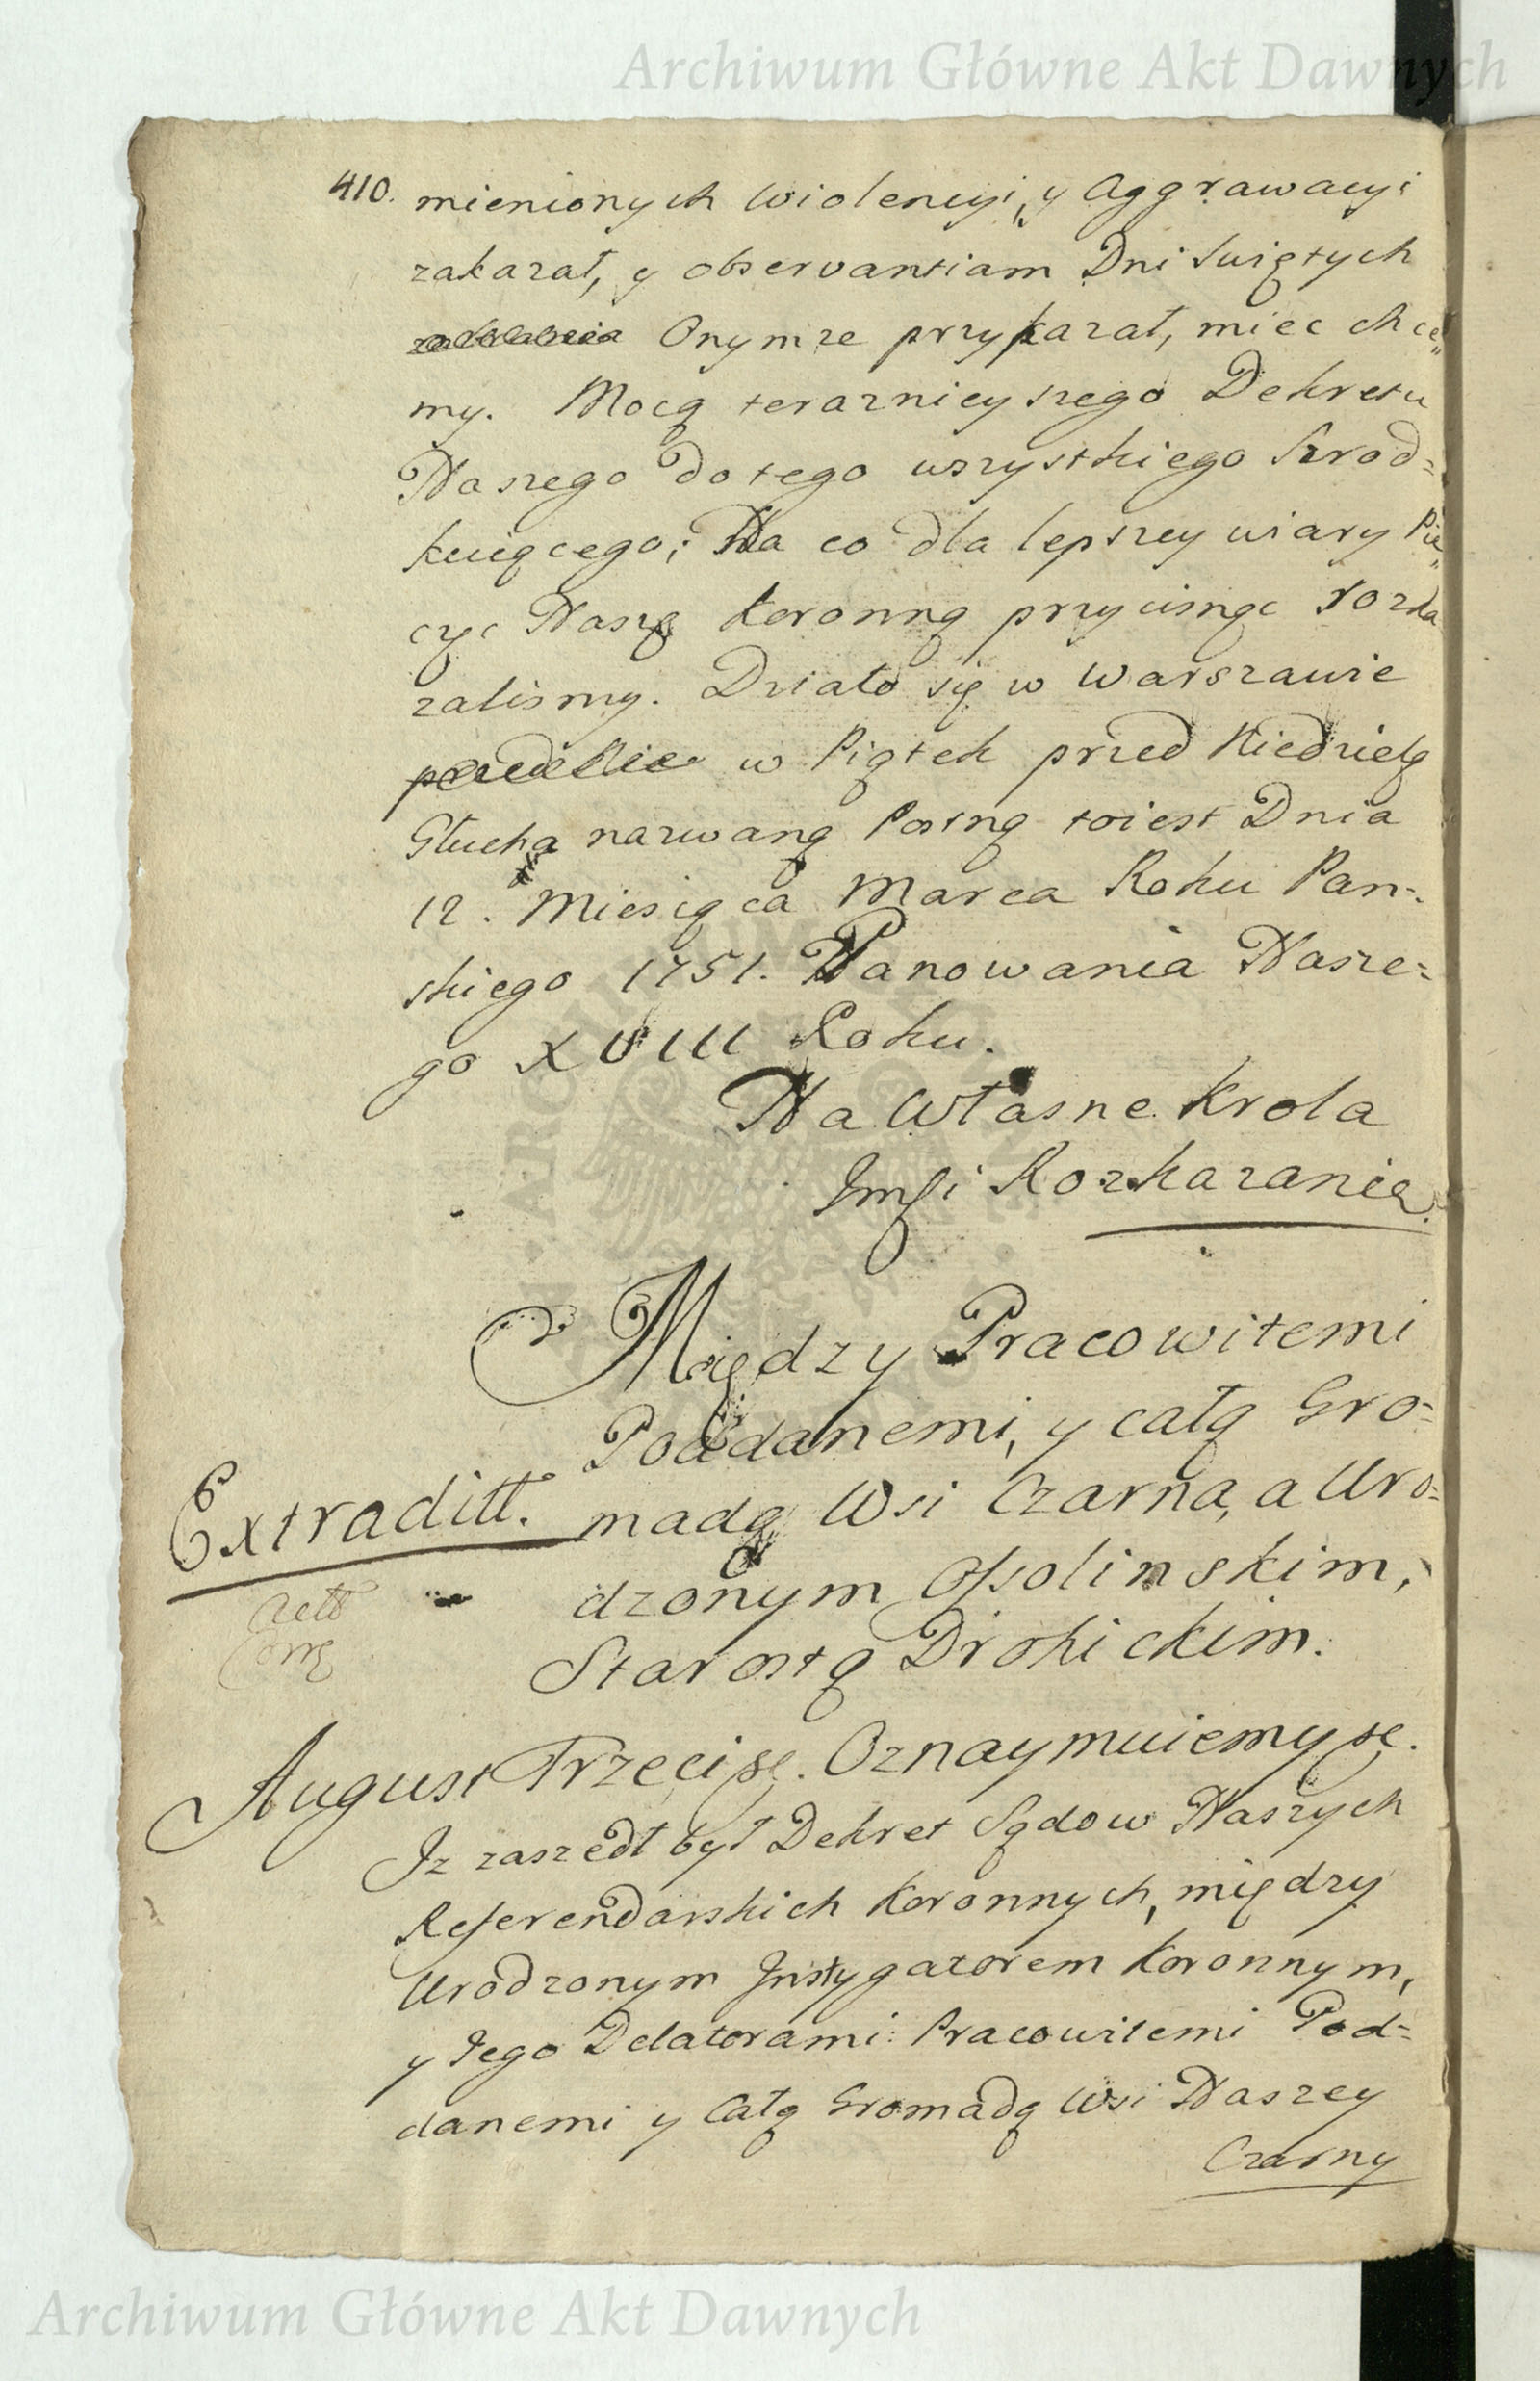 Archiwum Główne Akt Dawnych
410. mienionych Wiolencyi, y Aggrawacyi
zakazał, y observantiam Dni Swiętych
Onymze przykazał, miec chce„
my. Mocą teraznieyszego Dekretu
Naszego do tego wszystkiego Szrod=
kuiącego; Na co dla lepszey wiary Pie„
częc Naszą Koronną przycisnąc rozka
zalismy. Działo się w Warszawie
w Piątek przed Niedzielą
Głuchą nazwaną Postną toiest Dnia
12. Miesiąca Marca Roku Pan=
skiego 1751. Panowania Nasze=
go XVIII Roku.
Na Własne Krola
Jmsi Rozkazanie.
Między Pracowitemi
Poddanemi, y całą Gro=
Extraditt. madą Wsi Czarna, a Uro=
dzonym Ossolinskim,
Starostą Drohickim.
August Trzeci &. Oznaymuiemy &.
Jz zaszedł był Dekret Sądow Naszych
Referendarskich Koronnych, między
Urodzonym Instygatorem Koronnym,
y Jego Delatorami: Pracowitemi Pod=
danemi y Całą Gromadą Wsi Naszey
Czarny
Archiwum Główne Akt Dawnych